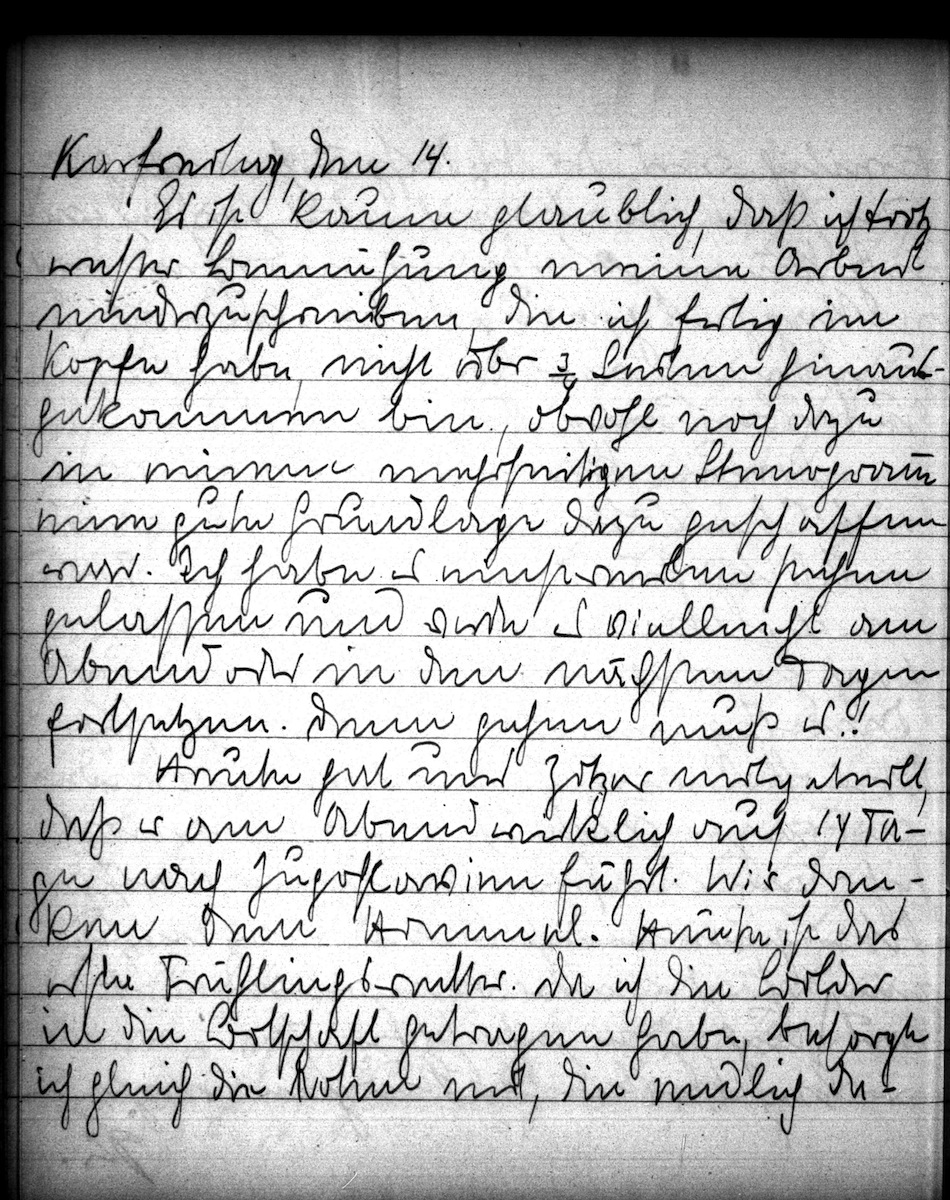 Karfreitag, den 14.
Es ist kaum glaublich, daß ich trotz
erster Bemühung meine Arbeit
niederzuschreiben, die ich fertig im
Kopfe habe, nicht über ¾ Seiten hinaus-
gekommen bin, obwohl noch dazu
in einem mehrseitigen Stenogramm
eine gute Grundlage dazu geschaffen
war. Ich habe es einstweilen stehen
gelassen und werde es vielleicht am
Abend oder in den nächsten Tagen
fortsetzen. Denn gehen muß es!!
Heute hat uns mitgeteilt,
daß er am Abend wirklich auf 14 Ta-
ge nach Jugoslawien fährt. Wir dan-
ken dem Himmel. Heute ist das
erste Frühlingswetter. Da ich die Bilder
in die Botschaft getragen habe, besorgte
ich gleich die Kohle mit, die endlich da-